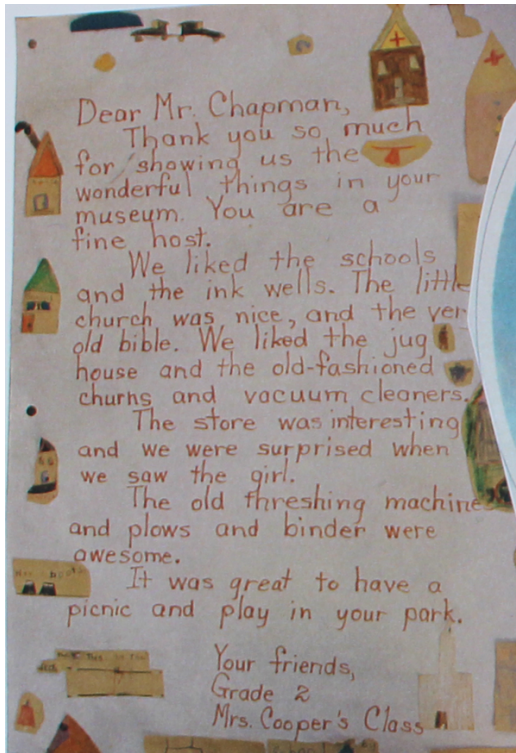 Dear Mr. Chapman,
Thank you so much
for showing us the
wonderful things in your
museum. You are a
fine host.
We liked the schools
and the ink wells. The little
church was nice, and the ver
old bible. We liked the jug
house and the old-fashioned
churns and vacuum cleaners.
The store was interesting
and we were surprised when
we saw the girl.
The old threshing machine
and plows and binder were
awesome.
It was great to have a
picnic and play in your park.
Your friends,
Grade 2
Mrs. Cooper's Class